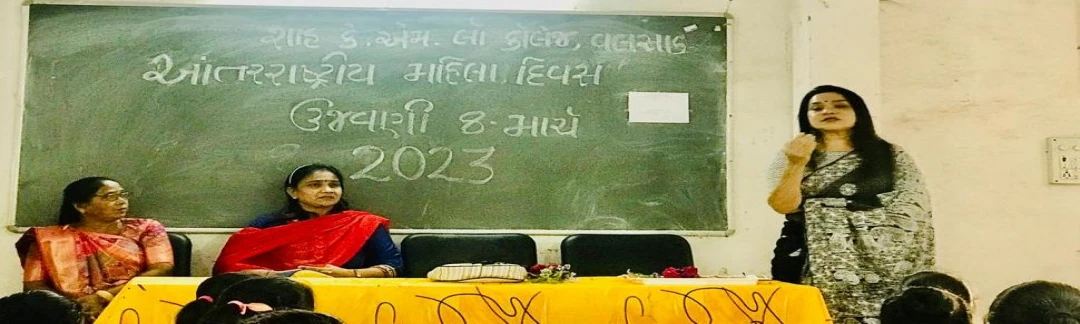 શાહ કે. એમ. લૉ કૉલેજ, વલસાડ
આંતરરાષ્ટ્રીય મહિલા દિવસ
ઉજવણી ૪-માર્ચ
2023